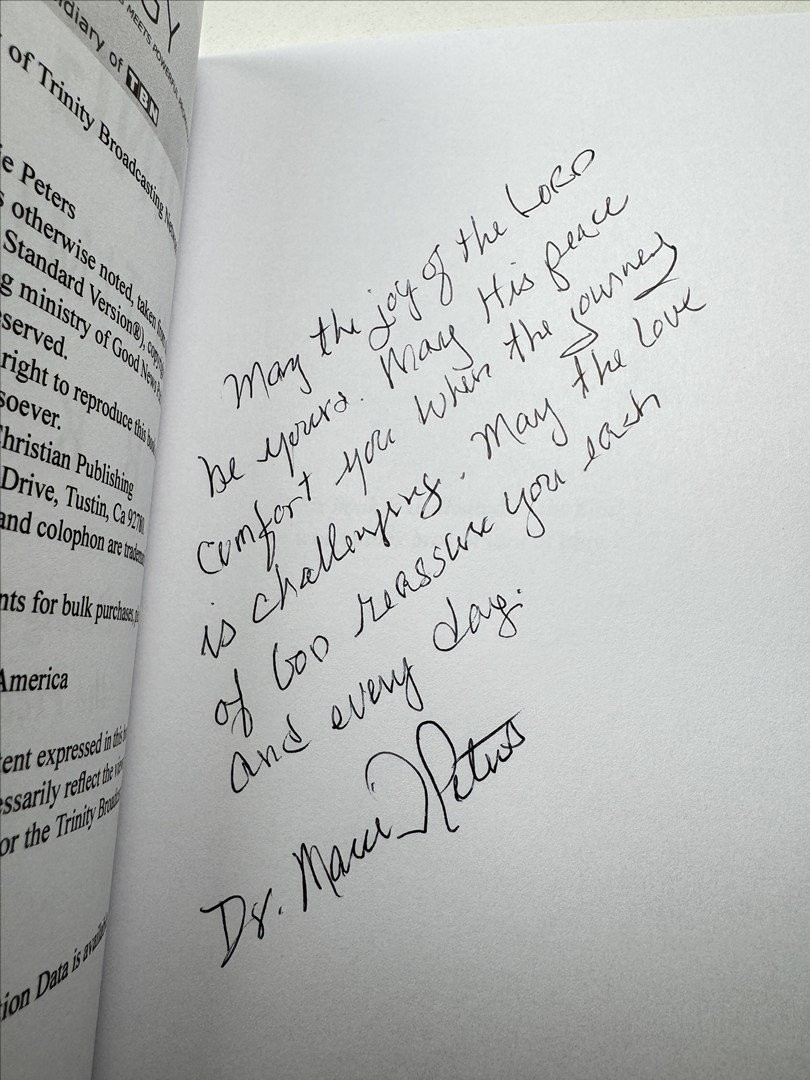 diary of TBN
of Trinity Broadcasting
e Peters
otherwise noted, taken
Standard Version®),
g ministry of Good News
served.
right to reproduce this
soever.
hristian Publishing
Drive, Tustin, Ca
and colophon are
nts for bulk purchases,
America
ent expressed in this
ssarily reflect the
or the Trinity
ion Data is
May the joy of the LORD
be yours. May His peace
comfort you when the journey
is challenging. May the love
of God reassure you each
and every day.
Dr. Peters